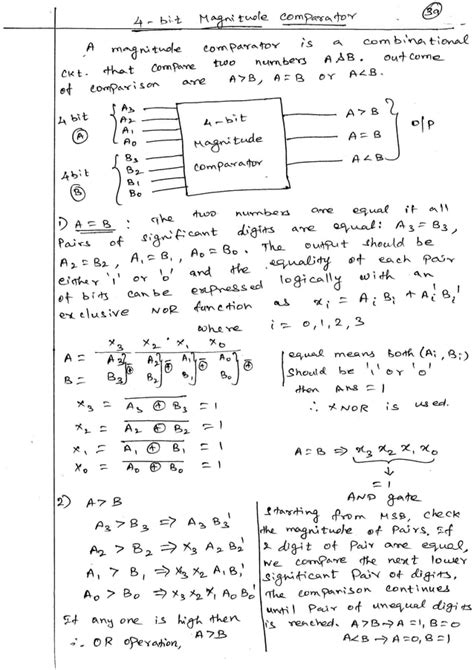 4-bit Magnitude Comparator
39
A magnitude comparator is a combinational
ckt. that compare two numbers A & B. outcome
of comparison are A>B, A=B or A<B.
4 bit
A
A3
A2
A1
A0
4 bit
B
B3
B2
B1
B0
4-bit
Magnitude
comparator
A>B
A=B
A<B
O/P
1) A=B : The two numbers are equal if all
Pairs of significant digits are equal: A3=B3,
A2=B2, A1=B1, A0=B0. The output should be
either '1' or '0' and the equality of each pair
of bits can be expressed logically with an
exclusive NOR function as xi = AiBi + Ai'Bi'
where i = 0,1,2,3
x3 x2 x1 x0
A = A3 A2 A1 A0
B = B3 B2 B1 B0
⊕ ⊕ ⊕ ⊕
x3 = \overline{A3 ⊕ B3} = 1
x2 = \overline{A2 ⊕ B2} = 1
x1 = \overline{A1 ⊕ B1} = 1
x0 = \overline{A0 ⊕ B0} = 1
equal means both (Ai, Bi)
should be '1' or '0'
then ANS = 1
∴ XNOR is used.
A=B ⇒ x3 x2 x1 x0
= 1
AND gate
2) A>B
A3 > B3 ⇒ A3 B3'
A2 > B2 ⇒ x3 A2 B2'
A1 > B1 ⇒ x3 x2 A1 B1'
A0 > B0 ⇒ x3 x2 x1 A0 B0'
If any one is high then
∴ OR operation, A>B
Starting from MSB, check
the magnitude of Pairs. If
2 digit of Pair are equal,
we compare the next lower
significant Pair of digits.
The comparison continues
until Pair of unequal digits
is reached. A>B → A=1, B=0
A<B → A=0, B=1